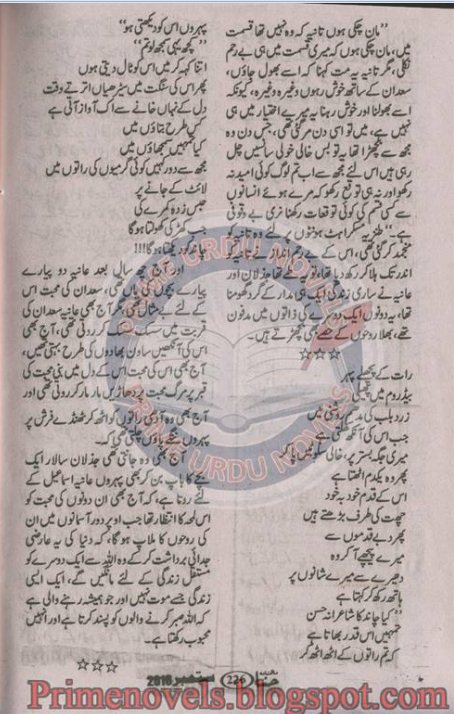 ”مان چکی ہوں تانیہ کہ وہ نہیں تھا قسمت
میں، مان چکی ہوں کہ میری قسمت میں ہی بے رحم
نکلی، مگر تانیہ یہ مت کہنا کہ اسے بھول جاؤں،
سعدان کے ساتھ خوش رہوں وغیرہ وغیرہ، کیونکہ
اسے بھولنا اور خوش رہنا یہ میرے اختیار میں ہی
نہیں ہے، میں تو اسی دن مر گئی تھی، جس دن وہ
مجھ سے بچھڑا تھا یہ تو بس خالی خولی سانسیں چل
رہی ہیں اس لئے مجھ سے اب تم لوگ کوئی امید نہ
رکھو اور نہ ہی توقع رکھو کہ مرے ہوئے انسانوں
سے کسی قسم کی کوئی توقعات رکھنا نری بے وقوفی
ہے۔“ طنزیہ مسکراہٹ ہونٹوں پر لئے وہ تانیہ کو
منجمد کر گئی تھی، اس کے بے رحم انداز نے تانیہ کو
اندر تک ہلا کر رکھ دیا تھا، جذلان اور
عانیہ نے ساری زندگی ایک ہی مدار کے گرد گھومنا
تھا، یہ دونوں ایک دوسرے کی ذاتوں میں مدفون
تھے، بھلا روحوں کے حصے بھی بچھڑتے ہیں۔
☆☆☆
رات کے پچھلے پہر
بیڈ روم میں پھیلی
زرد بلب کی مدھم روشنی میں
جب اس کی آنکھ کھلتی ہے
میری جگہ بستر پر، خالی پا کر
پھر وہ یکدم اٹھتا ہے
اس کے قدم خود بہ خود
چھت کی طرف بڑھتے ہیں
پھر دبے قدموں سے
میرے پیچھے آ کر وہ
دھیرے سے میرے شانوں پر
ہاتھ رکھ کر کہتا ہے
”کیا چاند کا شاعرانہ حسن
تمہیں اس قدر بھاتا ہے
کہ تم راتوں کے اٹھ اٹھ کر
پہروں اس کو دیکھتی ہو“
”کچھ یہی سمجھ لو تم“
اتنا کہہ کر میں اس کو ٹال دیتی ہوں
پھر اس کی سنگت میں سیڑھیاں اترتے وقت
دل کے نہاں خانے سے اک آواز آتی ہے
کس طرح بتاؤں میں
کیا تمہیں سمجھاؤں میں
مجھ سے دور کہیں کوئی گرمیوں کی راتوں میں
لائٹ کے جانے پر
حبس زدہ کمرے کی
جب کھڑکی کھولتا ہوگا
چاند کو دیکھتا ہوگا!!!
اور آج کچھ سالوں بعد عانیہ دو پیارے
پیارے بچوں کی ماں تھی، سعدان کی محبت اس
کے لئے بے مثال تھی، مگر آج بھی عانیہ سعدان کی
قربت میں سسک کر گزرتی تھی، آج بھی
اس کی آنکھیں ساون بھادوں کی طرح بہتی تھیں،
آج بھی اس کی محبت اس کے دل میں بنی محبت کی
قبر پر مرگ محبت پر دھاڑیں مار مار کر روتی تھی اور
آج بھی وہ آدھی راتوں کو اٹھ کر ٹھنڈے فرش پر
پہروں ننگے پاؤں چلتی تھی کہ۔
آج بھی وہ جانتی تھی جذلان سالار ایک
بچے کا باپ بن کر بھی پہروں عانیہ اسماعیل کے
لئے روتا ہے، کہ آج بھی ان دونوں کی محبت کو
اس لمحہ کا انتظار تھا جب اوپر دور آسمانوں میں ان
کی روحوں کا ملاپ ہوگا، کہ دنیا کی یہ عارضی
جدائی برداشت کر کے وہ اللہ سے ایک دوسرے کو
مستقل زندگی کے لئے مانگیں گے، ایک ایسی
زندگی جسے موت نہیں اور جو ہمیشہ رہنے والی ہے
کہ اللہ صبر کرنے والوں کو پسند کرتا ہے اور انہیں
محبوب رکھتا ہے۔
☆☆☆
حنا 226 ستمبر 2016
PRIME URDU NOVELS
PRIME URDU NOVELS
Primenovels.blogspot.com